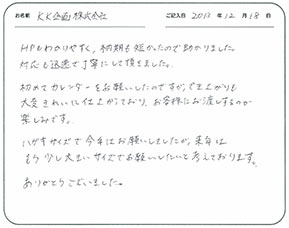 お名前 KK企画株式会社 ご記入日 2013年12月18日
HPもわかりやすく、納期も短かったので助かりました。
対応も迅速で丁寧にして頂きました。
初めてカレンダーをお願いしたのですが、でき上がりも
大変きれいに仕上がっており、お客様にお渡しするのが
楽しみです。
ハガキサイズで今年はお願いしましたが、来年は
もう少し大きいサイズでお願いしたいと考えております。
ありがとうございました。